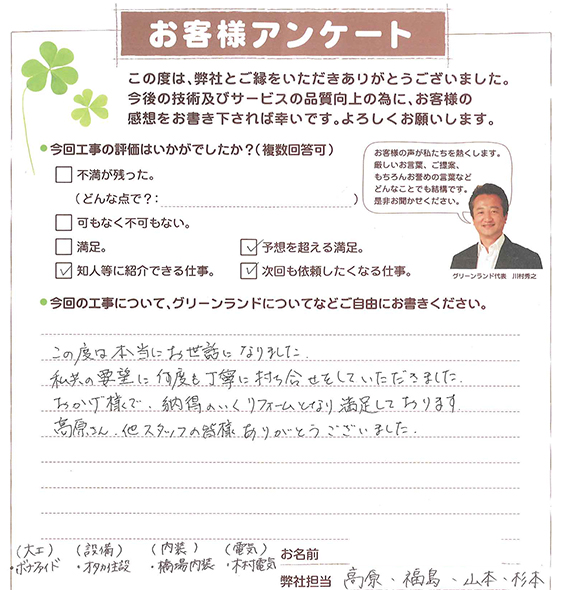 お客様アンケート
この度は、弊社とご縁をいただきありがとうございました。
今後の技術及びサービスの品質向上の為に、お客様の
感想をお書き下されば幸いです。よろしくお願いします。
●今回工事の評価はいかがでしたか？（複数回答可）
不満が残った。
（どんな点で？： ）
可もなく不可もない。
満足。
✓予想を超える満足。
✓知人等に紹介できる仕事。
✓次回も依頼したくなる仕事。
お客様の声が私たちを熱くします。
厳しいお言葉、ご提案、
もちろんお誉めの言葉など
どんなことでも結構です。
是非お聞かせください。
グリーンランド代表 川村秀之
●今回の工事について、グリーンランドについてなどご自由にお書きください。
この度は本当にお世話になりました.
私共の要望に何度も丁寧に打ち合せをしていただきました.
おかげ様で、納得のいくリフォームとなり満足しております
高原さん、他スタッフの皆様ありがとうございました.
（大工） （設備） （内装） （電気）
・ボナファイド ・オタカ住設 ・橋場内装 ・木村電気
お名前
弊社担当 高原・福島・山本・杉本